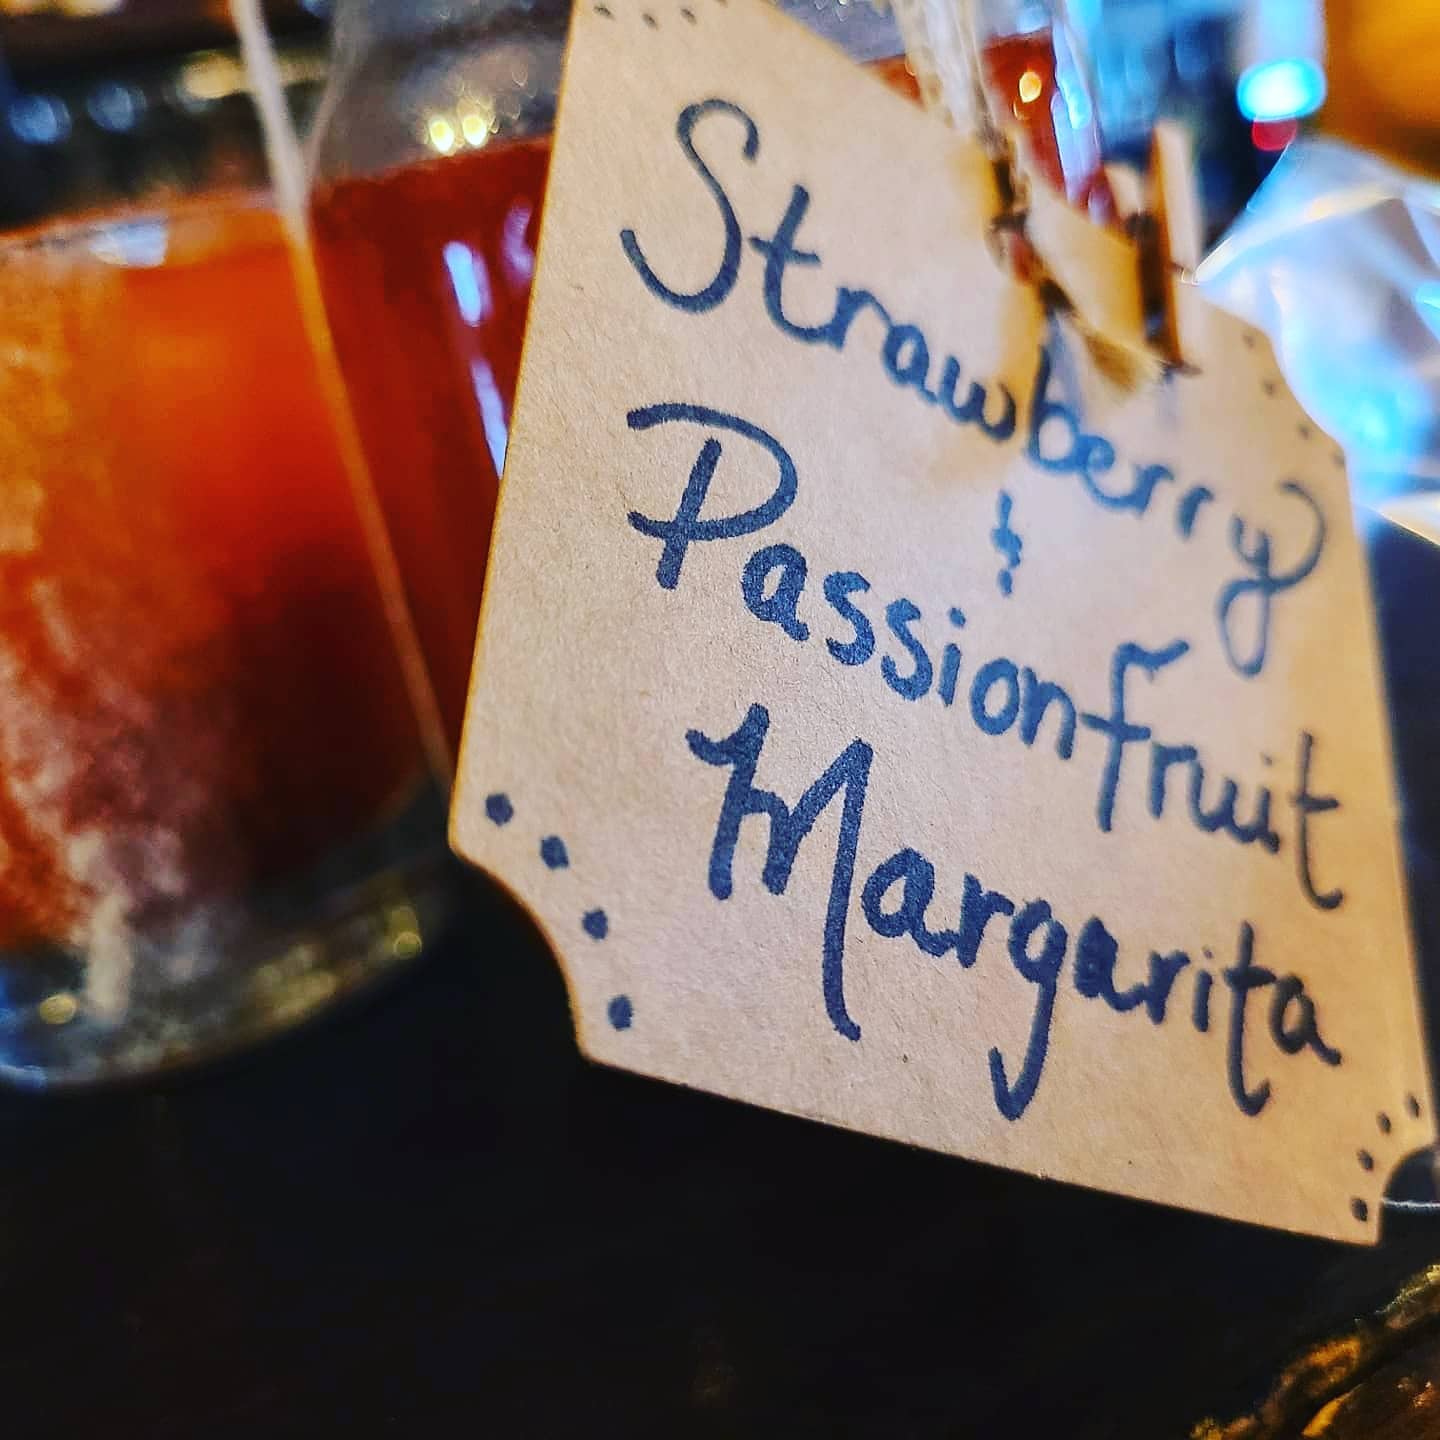 Strawberry
&
Passionfruit
Margarita